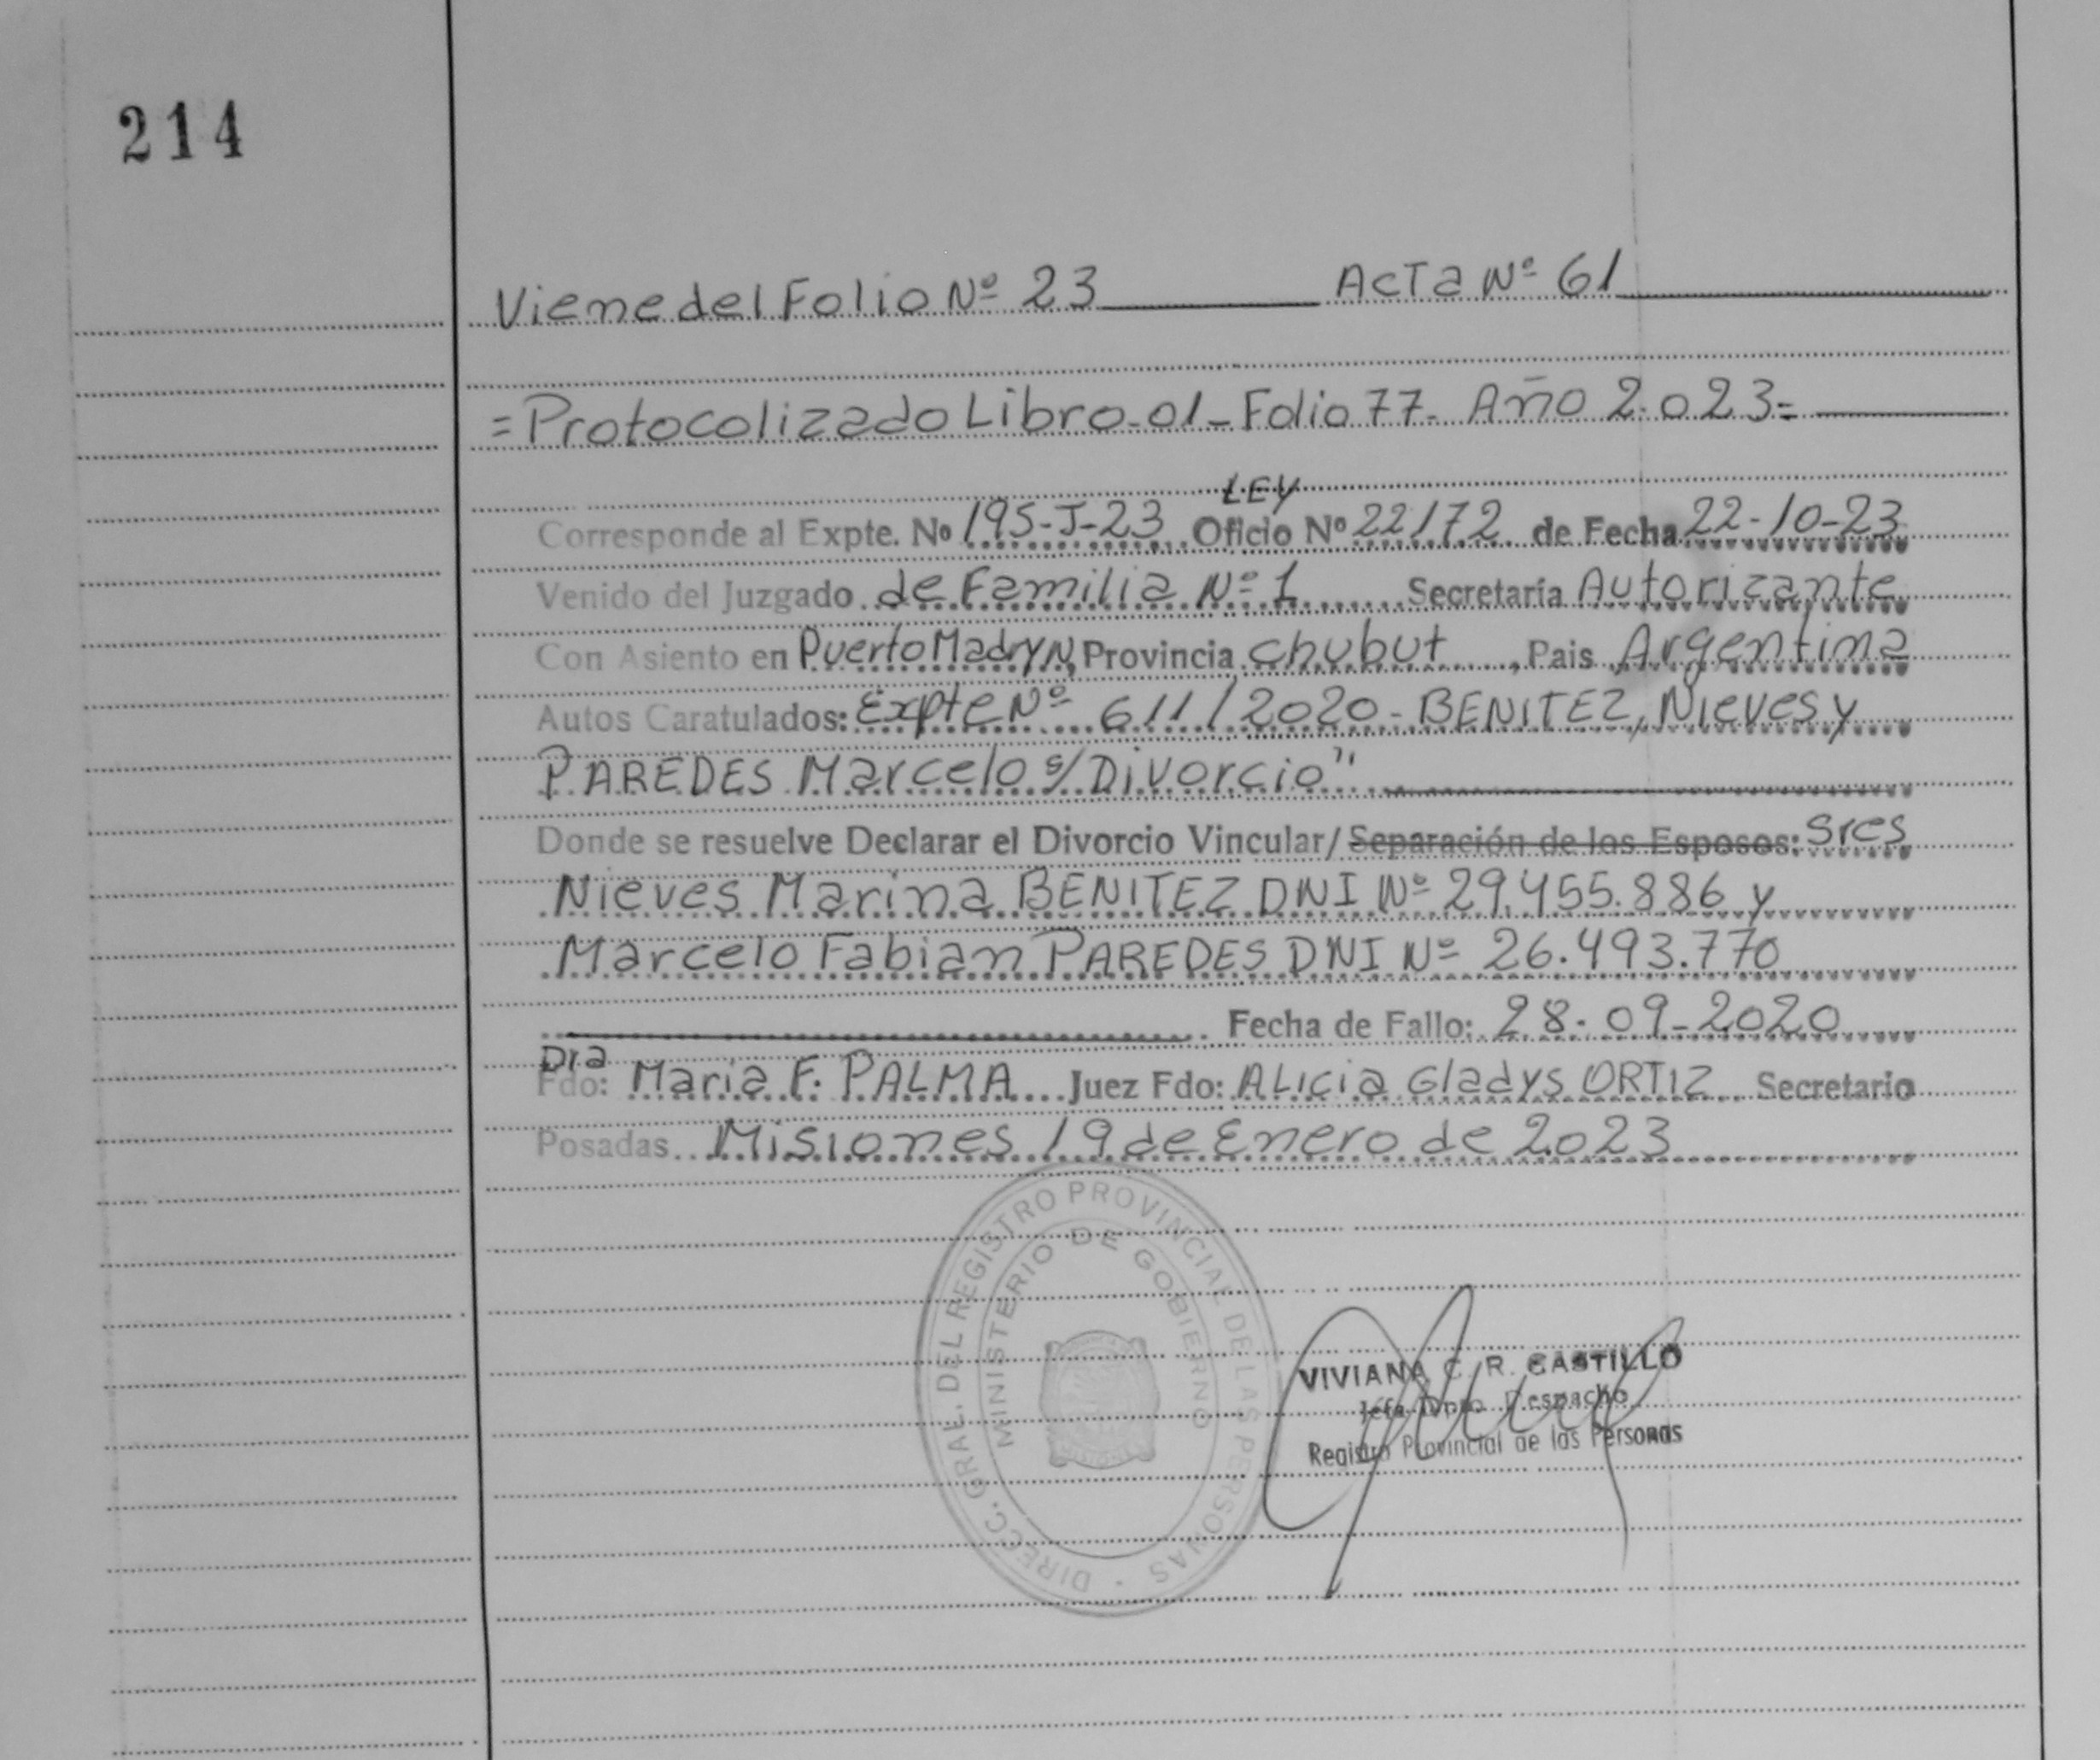 214
Viene del Folio Nº 23 Acta Nº 61
=Protocolizado Libro-01-Folio 77- Año 2.023=
LEY
Corresponde al Expte. Nº 195-J-23 Oficio Nº 22172 de Fecha 22-10-23
Venido del Juzgado de Familia Nº 1 Secretaría Autorizante
Con Asiento en Puerto Madryn, Provincia Chubut, Pais Argentina
Autos Caratulados: Expte Nº 611/2020-BENITEZ, Nieves y
PAREDES Marcelo s/Divorcio"
Donde se resuelve Declarar el Divorcio Vincular/ Separación de los Esposos: Sres
Nieves Marina BENITEZ DNI Nº 29.455.886 y
Marcelo Fabian PAREDES DNI Nº 26.493.770
Fecha de Fallo: 28-09-2020
Dra
Fdo: Maria F. PALMA Juez Fdo: Alicia Gladys ORTIZ Secretario
Posadas Misiones 19 de Enero de 2.023
DIRECC. GRAL. DEL REGISTRO PROVINCIAL DE LAS PERSONAS
MINISTERIO DE GOBIERNO
VIVIANA C. R. CASTILLO
Jefa Dpto. Despacho
Registro Provincial de las Personas